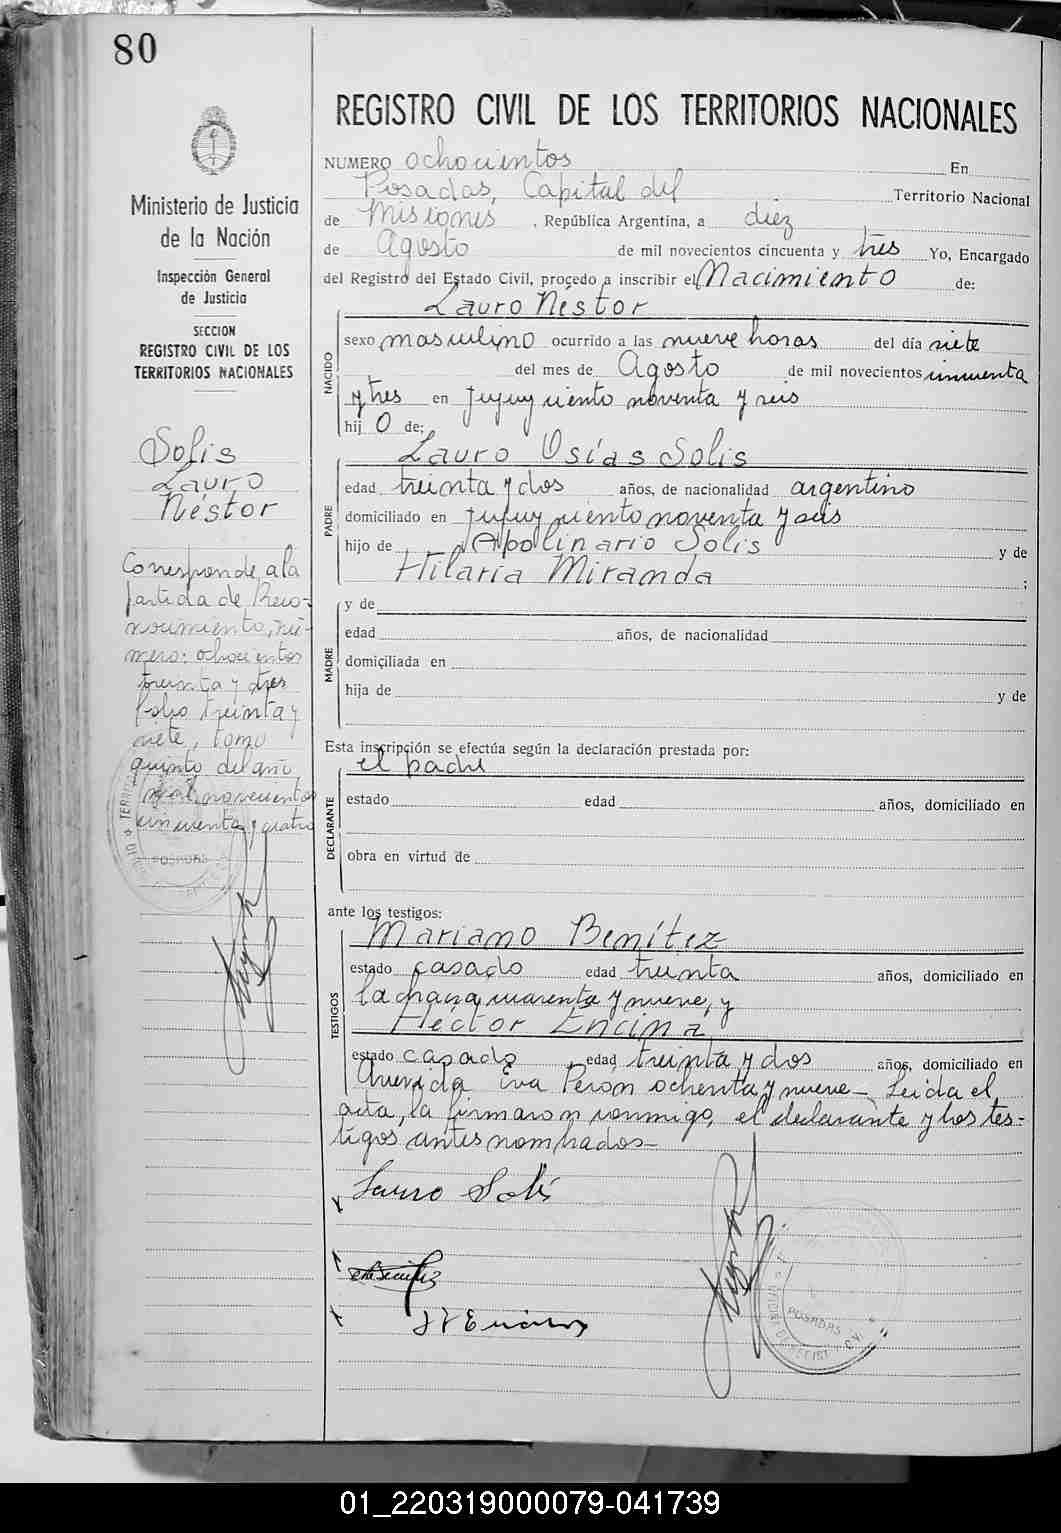 80
REGISTRO CIVIL DE LOS TERRITORIOS NACIONALES
Ministerio de Justicia
de la Nación
Inspección General
de Justicia
SECCION
REGISTRO CIVIL DE LOS
TERRITORIOS NACIONALES
Solis
Lauro
Néstor
Corresponde a la
partida de Reco-
nocimiento, nú-
mero: ochocientos
treinta y tres
folio treinta y
siete, tomo
quinto, del año
mil novecientos
cincuenta y cuatro
POSADAS
NUMERO ochocientos En
Posadas, Capital del Territorio Nacional
de Misiones, República Argentina, a diez
de Agosto de mil novecientos cincuenta y tres Yo, Encargado
del Registro del Estado Civil, procedo a inscribir el Nacimiento de:
Lauro Néstor
NACIDO
sexo masculino ocurrido a las nueve horas del día siete
del mes de Agosto de mil novecientos cincuenta
y tres en Jujuy ciento noventa y seis
hij o de:
Lauro Osías Solis
PADRE
edad treinta y dos años, de nacionalidad argentino
domiciliado en Jujuy ciento noventa y seis
hijo de Apolinario Solis y de
Hilaria Miranda ;
MADRE
y de
edad años, de nacionalidad
domiciliada en
hija de y de
Esta inscripción se efectúa según la declaración prestada por:
el padre
DECLARANTE
estado edad años, domiciliado en
obra en virtud de
ante los testigos:
Mariano Benítez
TESTIGOS
estado casado edad treinta años, domiciliado en
la chacra cuarenta y nueve, y
Héctor Encina
estado casado edad treinta y dos años, domiciliado en
Avenida Eva Peron ochenta y nueve_ Leida el
acta, la firmaron conmigo, el declarante y los tes-
tigos antes nombrados_
Lauro Solis
POSADAS
01_220319000079-041739